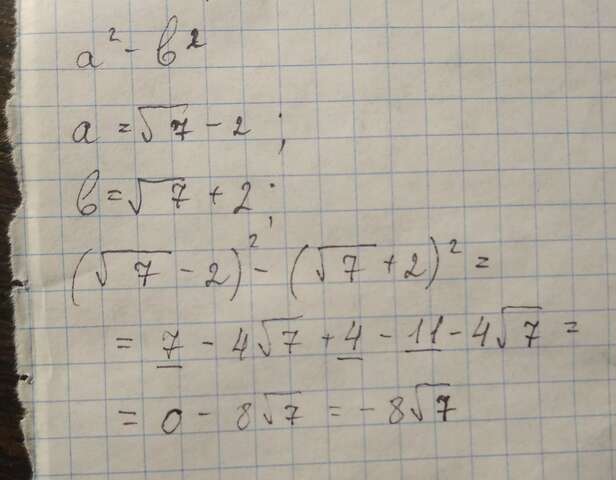 a² - b²
a = √7 - 2 ;
b = √7 + 2 ;
(√7 - 2)² - (√7 + 2)² =
= 7 - 4√7 + 4 - 11 - 4√7 =
= 0 - 8√7 = -8√7